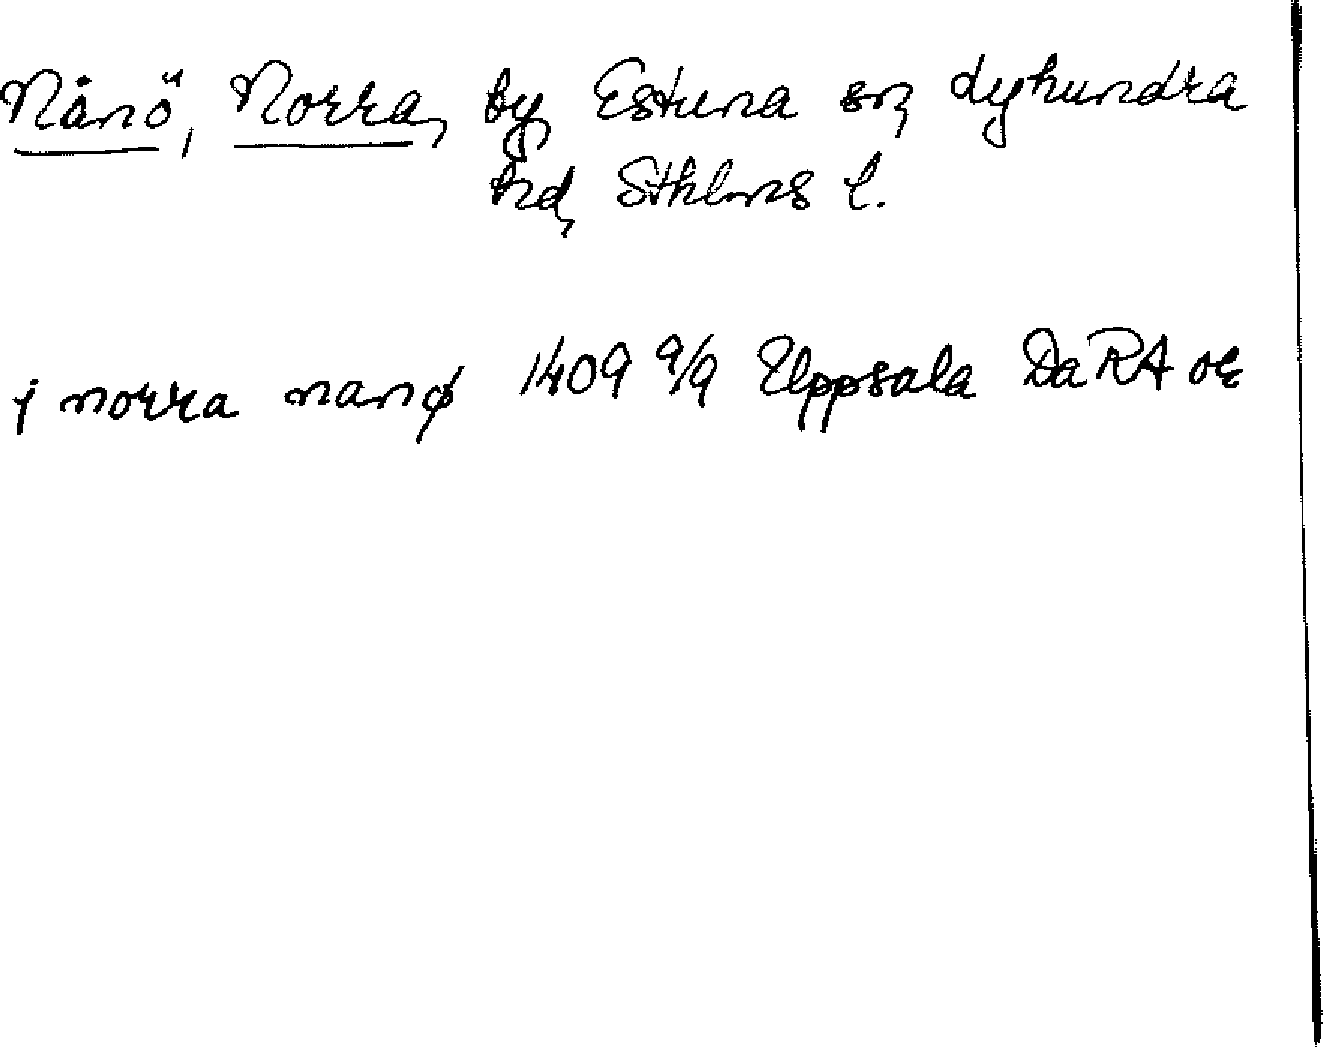 Nånö, Norra, by, Estuna sn, Lyhundra
hd, Sthlms l.
j norra nanø 1409 9/9 Uppsala DaRA or